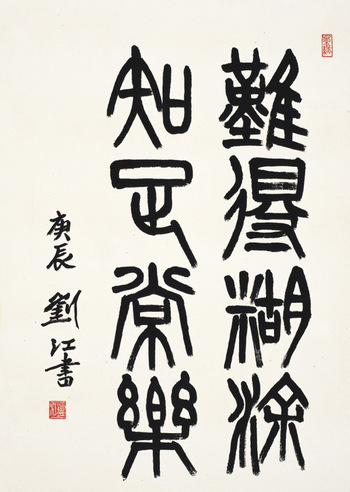 難得糊涂
知足常樂
庚辰 劉江書